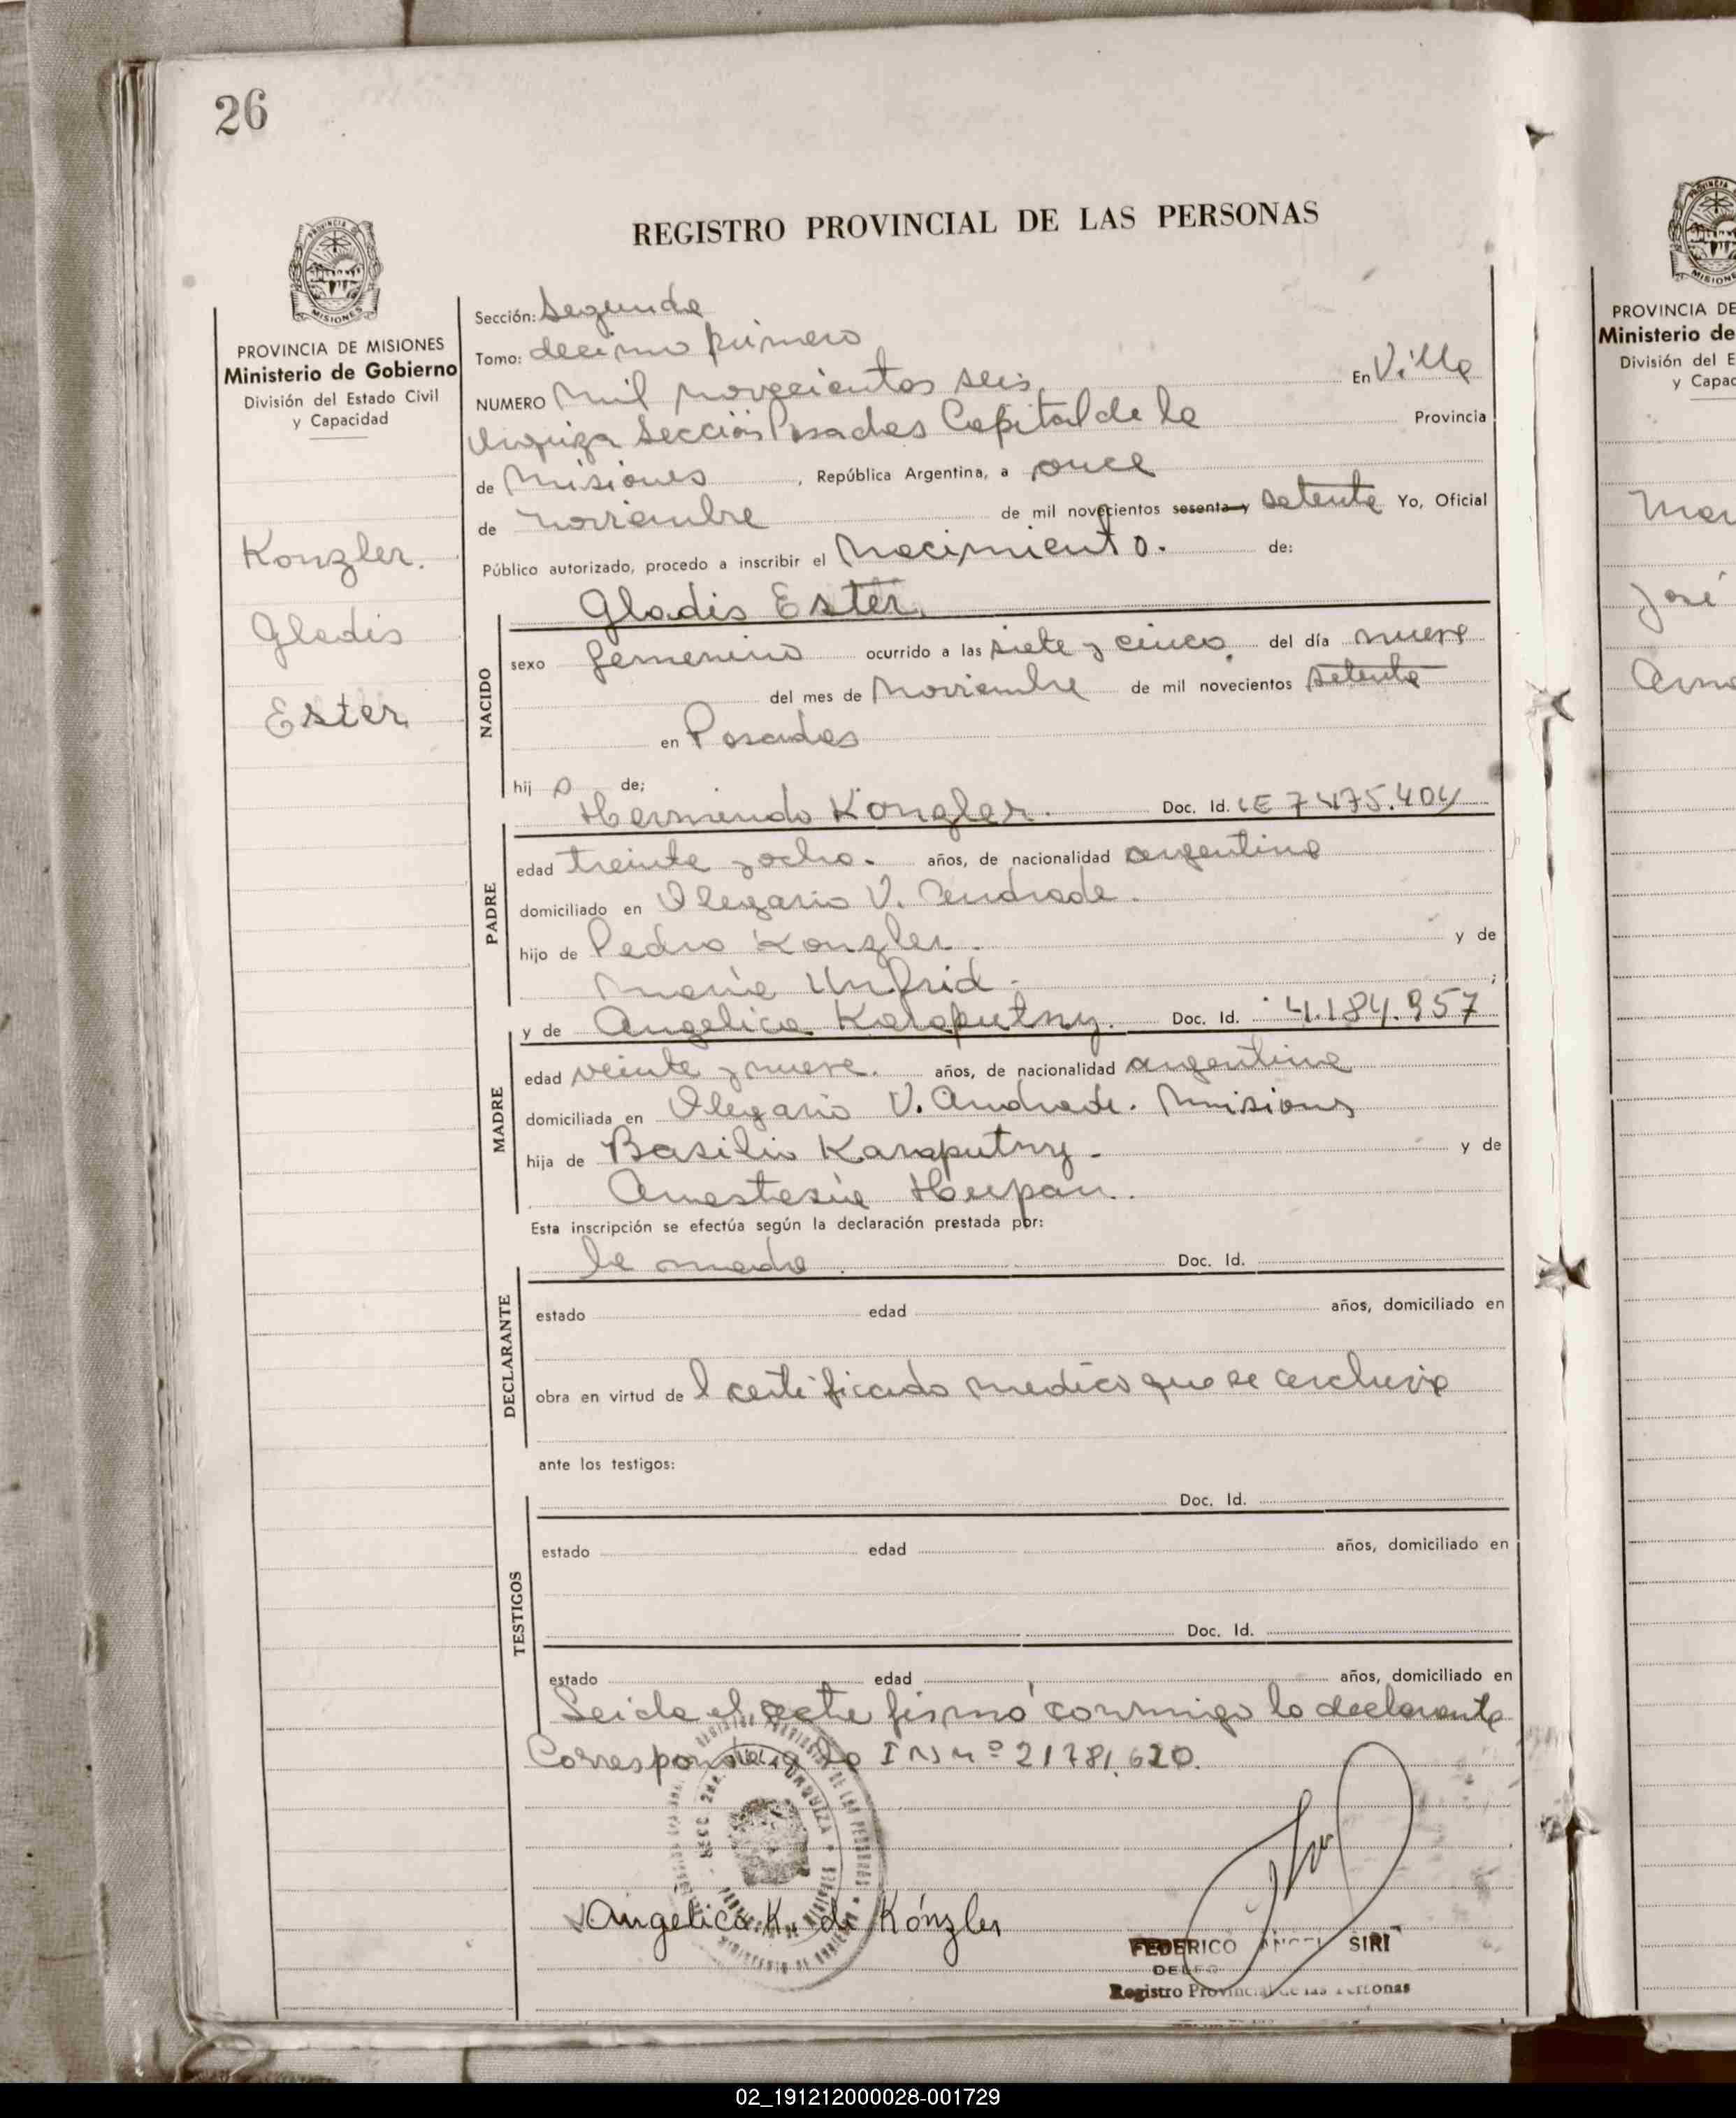 26
REGISTRO PROVINCIAL DE LAS PERSONAS
PROVINCIA DE MISIONES
Ministerio de Gobierno
División del Estado Civil
y Capacidad
Konzler.
Gladis
Ester
Sección: Segunda
Tomo: decimo primero
NUMERO mil novecientos seis En Villa
Urquiza Sección Posadas Capital de la Provincia
de Misiones, República Argentina, a once
de noviembre de mil novecientos sesenta y setenta Yo, Oficial
Público autorizado, procedo a inscribir el Nacimiento. de:
Gladis Ester.
NACIDO
sexo femenino ocurrido a las siete y cinco del día nueve
del mes de Noviembre de mil novecientos setenta
en Posadas
hij a de;
Hermindo Konzler. Doc. Id. LE 7475.404
PADRE
edad treinta y ocho. años, de nacionalidad argentina
domiciliado en Olegario V. Andrade.
hijo de Pedro Konzler. y de
Maria Unfrid. ;
y de Angelica Karaputny. Doc. Id. 4.184.957
MADRE
edad veinte y nueve. años, de nacionalidad argentina
domiciliada en Olegario V. Andrade. Misiones
hija de Basilio Karaputny - y de
Anastasia Hupan.
Esta inscripción se efectúa según la declaración prestada por:
la madre. Doc. Id.
DECLARANTE
estado edad años, domiciliado en
obra en virtud de l certificado medico que se archiva
ante los testigos:
Doc. Id.
TESTIGOS
estado edad años, domiciliado en
Doc. Id.
estado edad años, domiciliado en
Leida el acta firmó conmigo la declarante
Corresponde la INMº 21781.620.
Angelica K. de Kónzler
FEDERICO ANGEL SIRI
Registro Provincial de las Personas
PROVINCIA DE
Ministerio de
División del E
y Capac
José
02_191212000028-001729